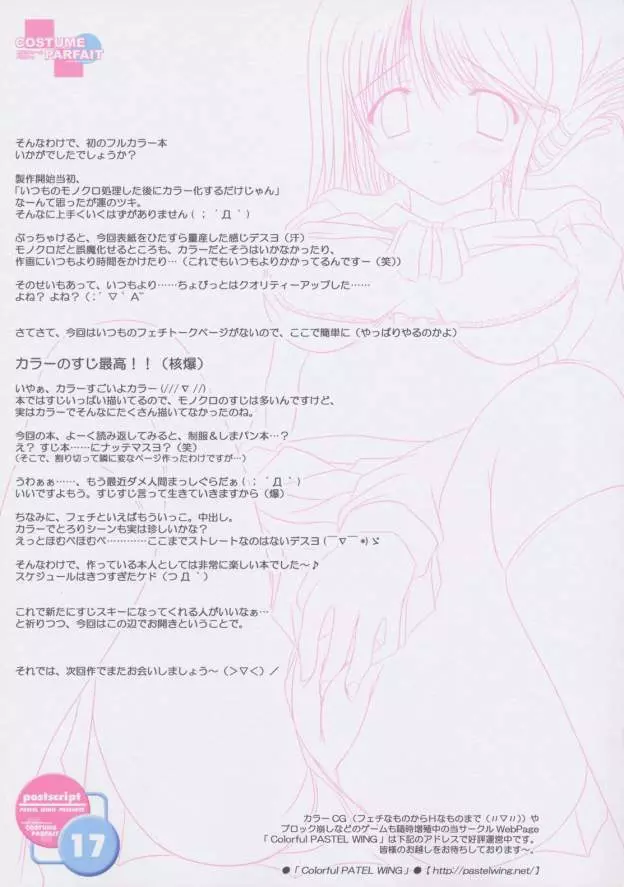 COSTUME
PARFAIT
そんなわけで、初のフルカラー本
いかがでしたでしょうか？
製作開始当初、
「いつものモノクロ処理した後にカラー化するだけじゃん」
なーんて思ったが運のツキ。
そんなに上手くいくはずがありません(；゛Д｀)
ぶっちゃけると、今回表紙をひたすら量産した感じデスヨ（汗）
モノクロだと誤魔化せるところも、カラーだとそうはいかなかったり、
作画にいつもより時間をかけたり…（これでもいつもよりかかってるんですー（笑））
そのせいもあって、いつもより……ちょびっとはクオリティーアップした……
よね？ よね？(；´▽｀A``
さてさて、今回はいつものフェチトークページがないので、ここで簡単に（やっぱりやるのかよ）
カラーのすじ最高！！（核爆）
いやぁ、カラーすごいよカラー(///∇//)
本ではすじいっぱい描いてるので、モノクロのすじは多いんですけど、
実はカラーでそんなにたくさん描いてなかったのね。
今回の本、よーく読み返してみると、制服＆しまパン本…？
え？ すじ本……にナッテマスヨ？（笑）
（そこで、割り切って隣に変なページ作ったわけですが…）
うわぁぁ……、もう最近ダメ人間まっしぐらだぁ(；゛Д｀)
いいですよもう。すじすじ言って生きていきますから（爆）
ちなみに、フェチといえばもういっこ。中出し。
カラーでとろりシーンも実は珍しいかな？
えっとほむぺほむぺ…………ここまでストレートなのはないデスヨ(￣▽￣*)ゞ
そんなわけで、作っている本人としては非常に楽しい本でした～♪
スケジュールはきつすぎたケド（つД｀）
これで新たにすじスキーになってくれる人がいいなぁ…
と祈りつつ、今回はこの辺でお開きということで。
それでは、次回作でまたお会いしましょう～(＞▽＜)／
postscript
PASTEL WING PRESENTS
COSTUME
PARFAIT
17
カラーCG（フェチなものからHなものまで（〃▽〃））や
ブロック崩しなどのゲームも随時増殖中の当サークルWebPage
「Colorful PASTEL WING」は下記のアドレスで好評運営中です。
皆様のお越しをお待ちしております～。
●「Colorful PATEL WING」●【http://pastelwing.net/】